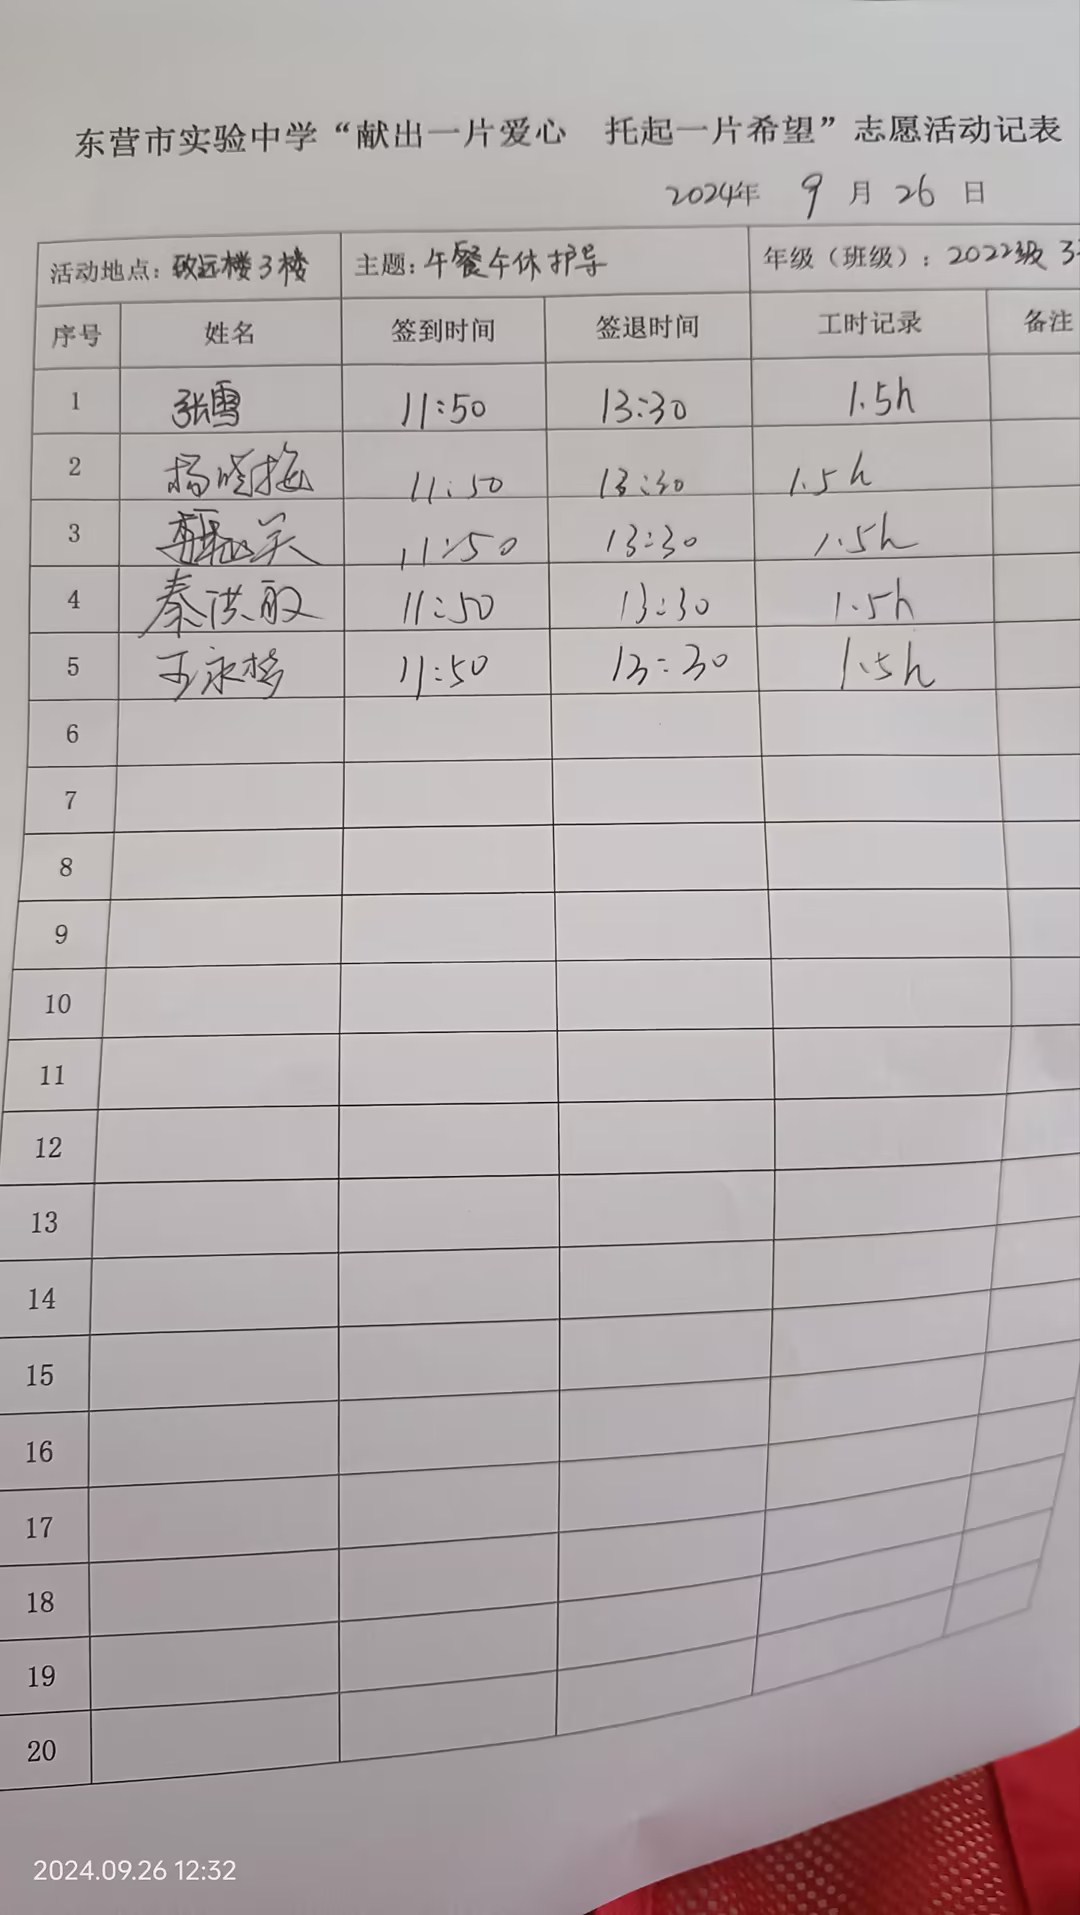 东营市实验中学“献出一片爱心 托起一片希望”志愿活动记表
2024年 9 月 26 日
活动地点：致远楼3楼 主题：午餐午休护导 年级（班级）：2022级 3
序号 姓名 签到时间 签退时间 工时记录 备注
1 张雪 11:50 13:30 1.5h
2 杨晓梅 11:50 13:30 1.5h
3 11:50 13:30 1.5h
4 秦洪敏 11:50 13:30 1.5h
5 王永梅 11:50 13:30 1.5h
6
7
8
9
10
11
12
13
14
15
16
17
18
19
20
2024.09.26 12:32